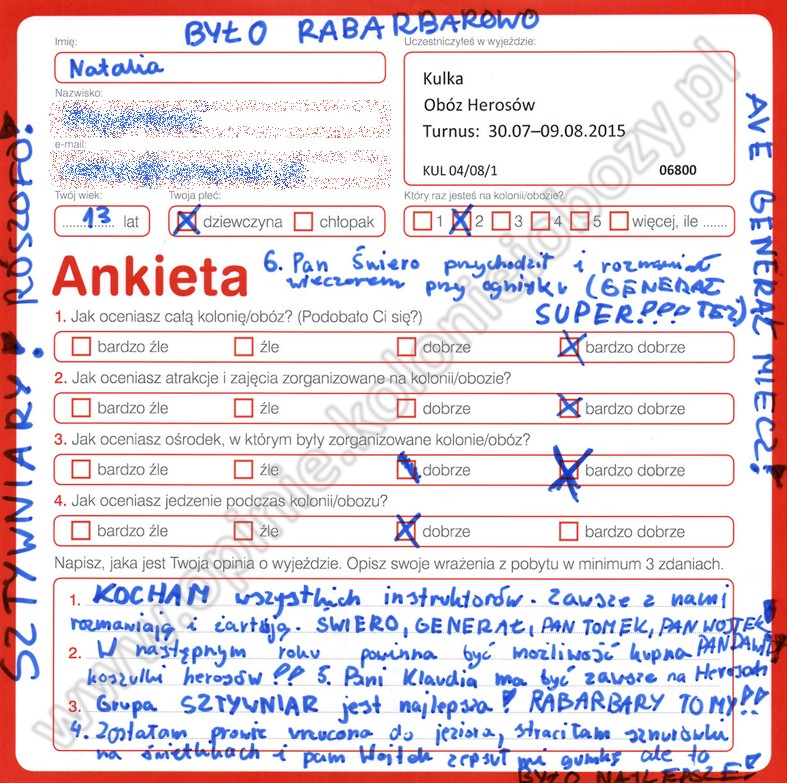 BYŁO RABARBAROWO
Imię:
Natalia
Nazwisko:
e-mail:
Twój wiek:
13 lat
Twoja płeć:
dziewczyna chłopak
Uczestniczyłeś w wyjeździe:
Kulka
Obóz Herosów
Turnus: 30.07–09.08.2015
KUL 04/08/1 06800
Który raz jesteś na kolonii/obozie?
1 2 3 4 5 więcej, ile ......
Ankieta
6. Pan Świero przychodził i rozmawiał
wieczorem przy ognisku (GENERAŁ
SUPER!!! TEŻ)
1. Jak oceniasz całą kolonię/obóz? (Podobało Ci się?)
bardzo źle źle dobrze bardzo dobrze
2. Jak oceniasz atrakcje i zajęcia zorganizowane na kolonii/obozie?
bardzo źle źle dobrze bardzo dobrze
3. Jak oceniasz ośrodek, w którym były zorganizowane kolonie/obóz?
bardzo źle źle dobrze bardzo dobrze
4. Jak oceniasz jedzenie podczas kolonii/obozu?
bardzo źle źle dobrze bardzo dobrze
Napisz, jaka jest Twoja opinia o wyjeździe. Opisz swoje wrażenia z pobytu w minimum 3 zdaniach.
1. KOCHAM wszystkich instruktorów. Zawsze z nami
rozmawiają i żartują. ŚWIERO, GENERAŁ, PAN TOMEK, PAN WOJTEK
PAN DAWID
2. W następnym roku powinna być możliwość kupna
koszulki herosów!! 5. Pani Klaudia ma być zawsze na Herosach
3. Grupa SZTYWNIAR jest najlepsza! RABARBARY TO MY!!
4. Zostałam prawie wrzucona do jeziora, straciłam sznurówki
na świetlikach i pan Wojtek zepsuł mi gumkę ale to
BYŁO NAJLEPSZE!
SZTYWNIARY!
AVE GENERAŁ MIECZ!
www.opinie.kolonieiobozy.pl